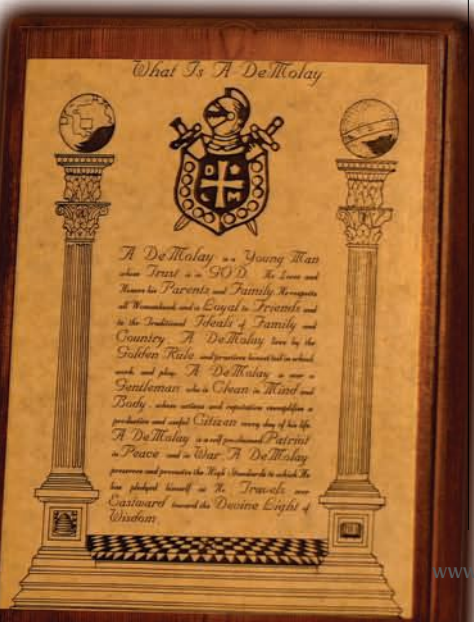 What Is A DeMolay
D
M
A DeMolay is a Young Man
whose Trust is in GOD. He Loves and
Honors his Parents and Family. He respects
all Womanhood and is Loyal to Friends and
to the Traditional Ideals of Family and
Country. A DeMolay lives by the
Golden Rule and practices honest toil in school
work and play. A DeMolay is ever a
Gentleman who is Clean in Mind and
Body, whose actions and reputation exemplifies a
productive and useful Citizen every day of his life.
A DeMolay is a self proclaimed Patriot
in Peace and in War. A DeMolay
preserves and promotes the High Standards to which He
has pledged himself as He Travels ever
Eastward toward the Devine Light of
Wisdom.
www